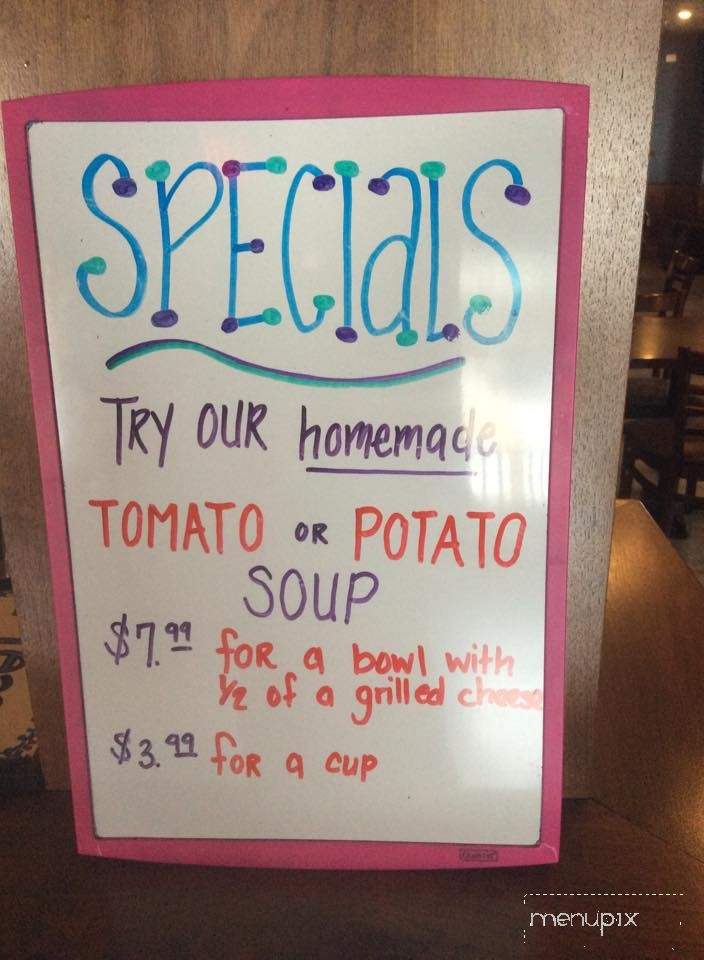 SPECIaLS
TRY OUR homemade
TOMATO OR POTATO
SOUP
$7.99 foR a bowl with
1/2 of a grilled cheese
$3.99 foR a cup
menupix